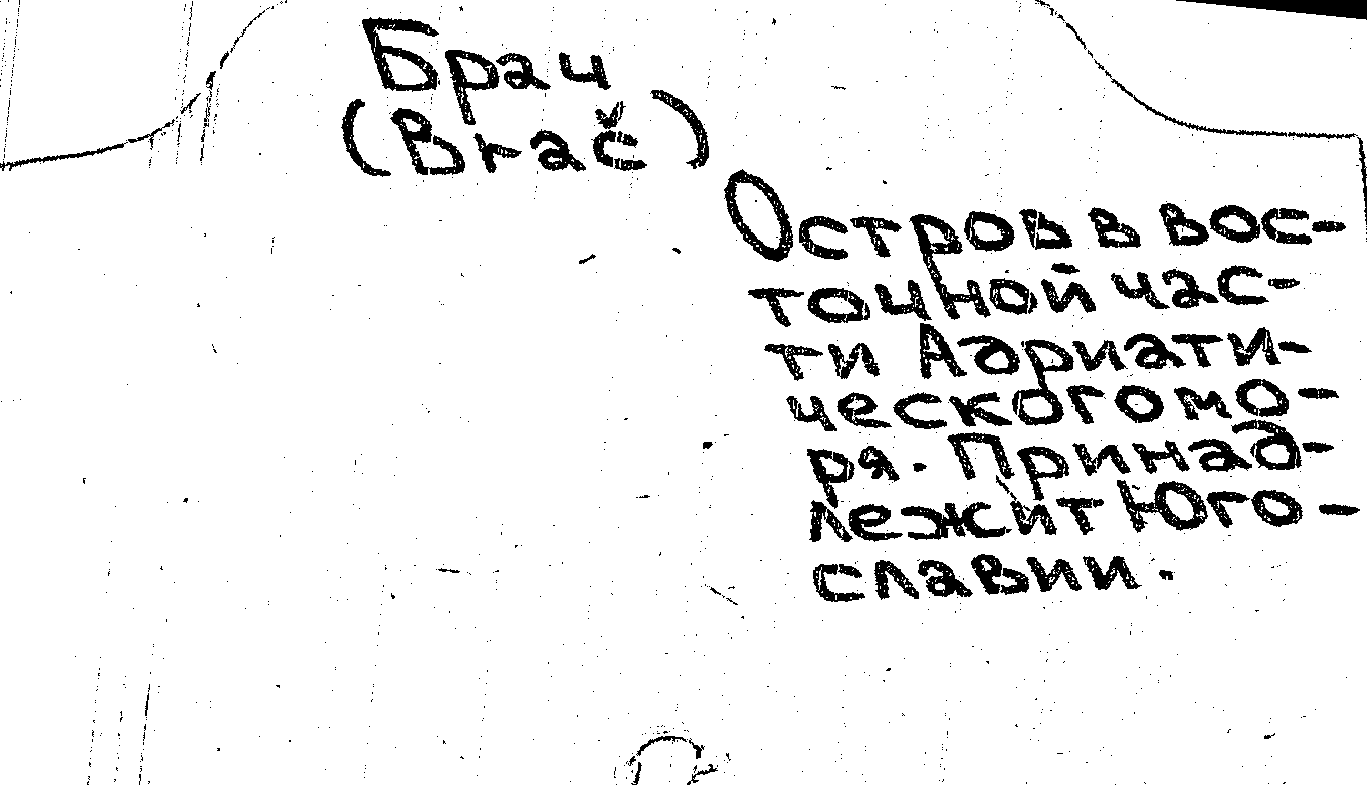 Брач
(Brač)
Остров в вос-
точной час-
ти Адриати-
ческого мо-
ря. Принад-
лежит Юго-
славии.